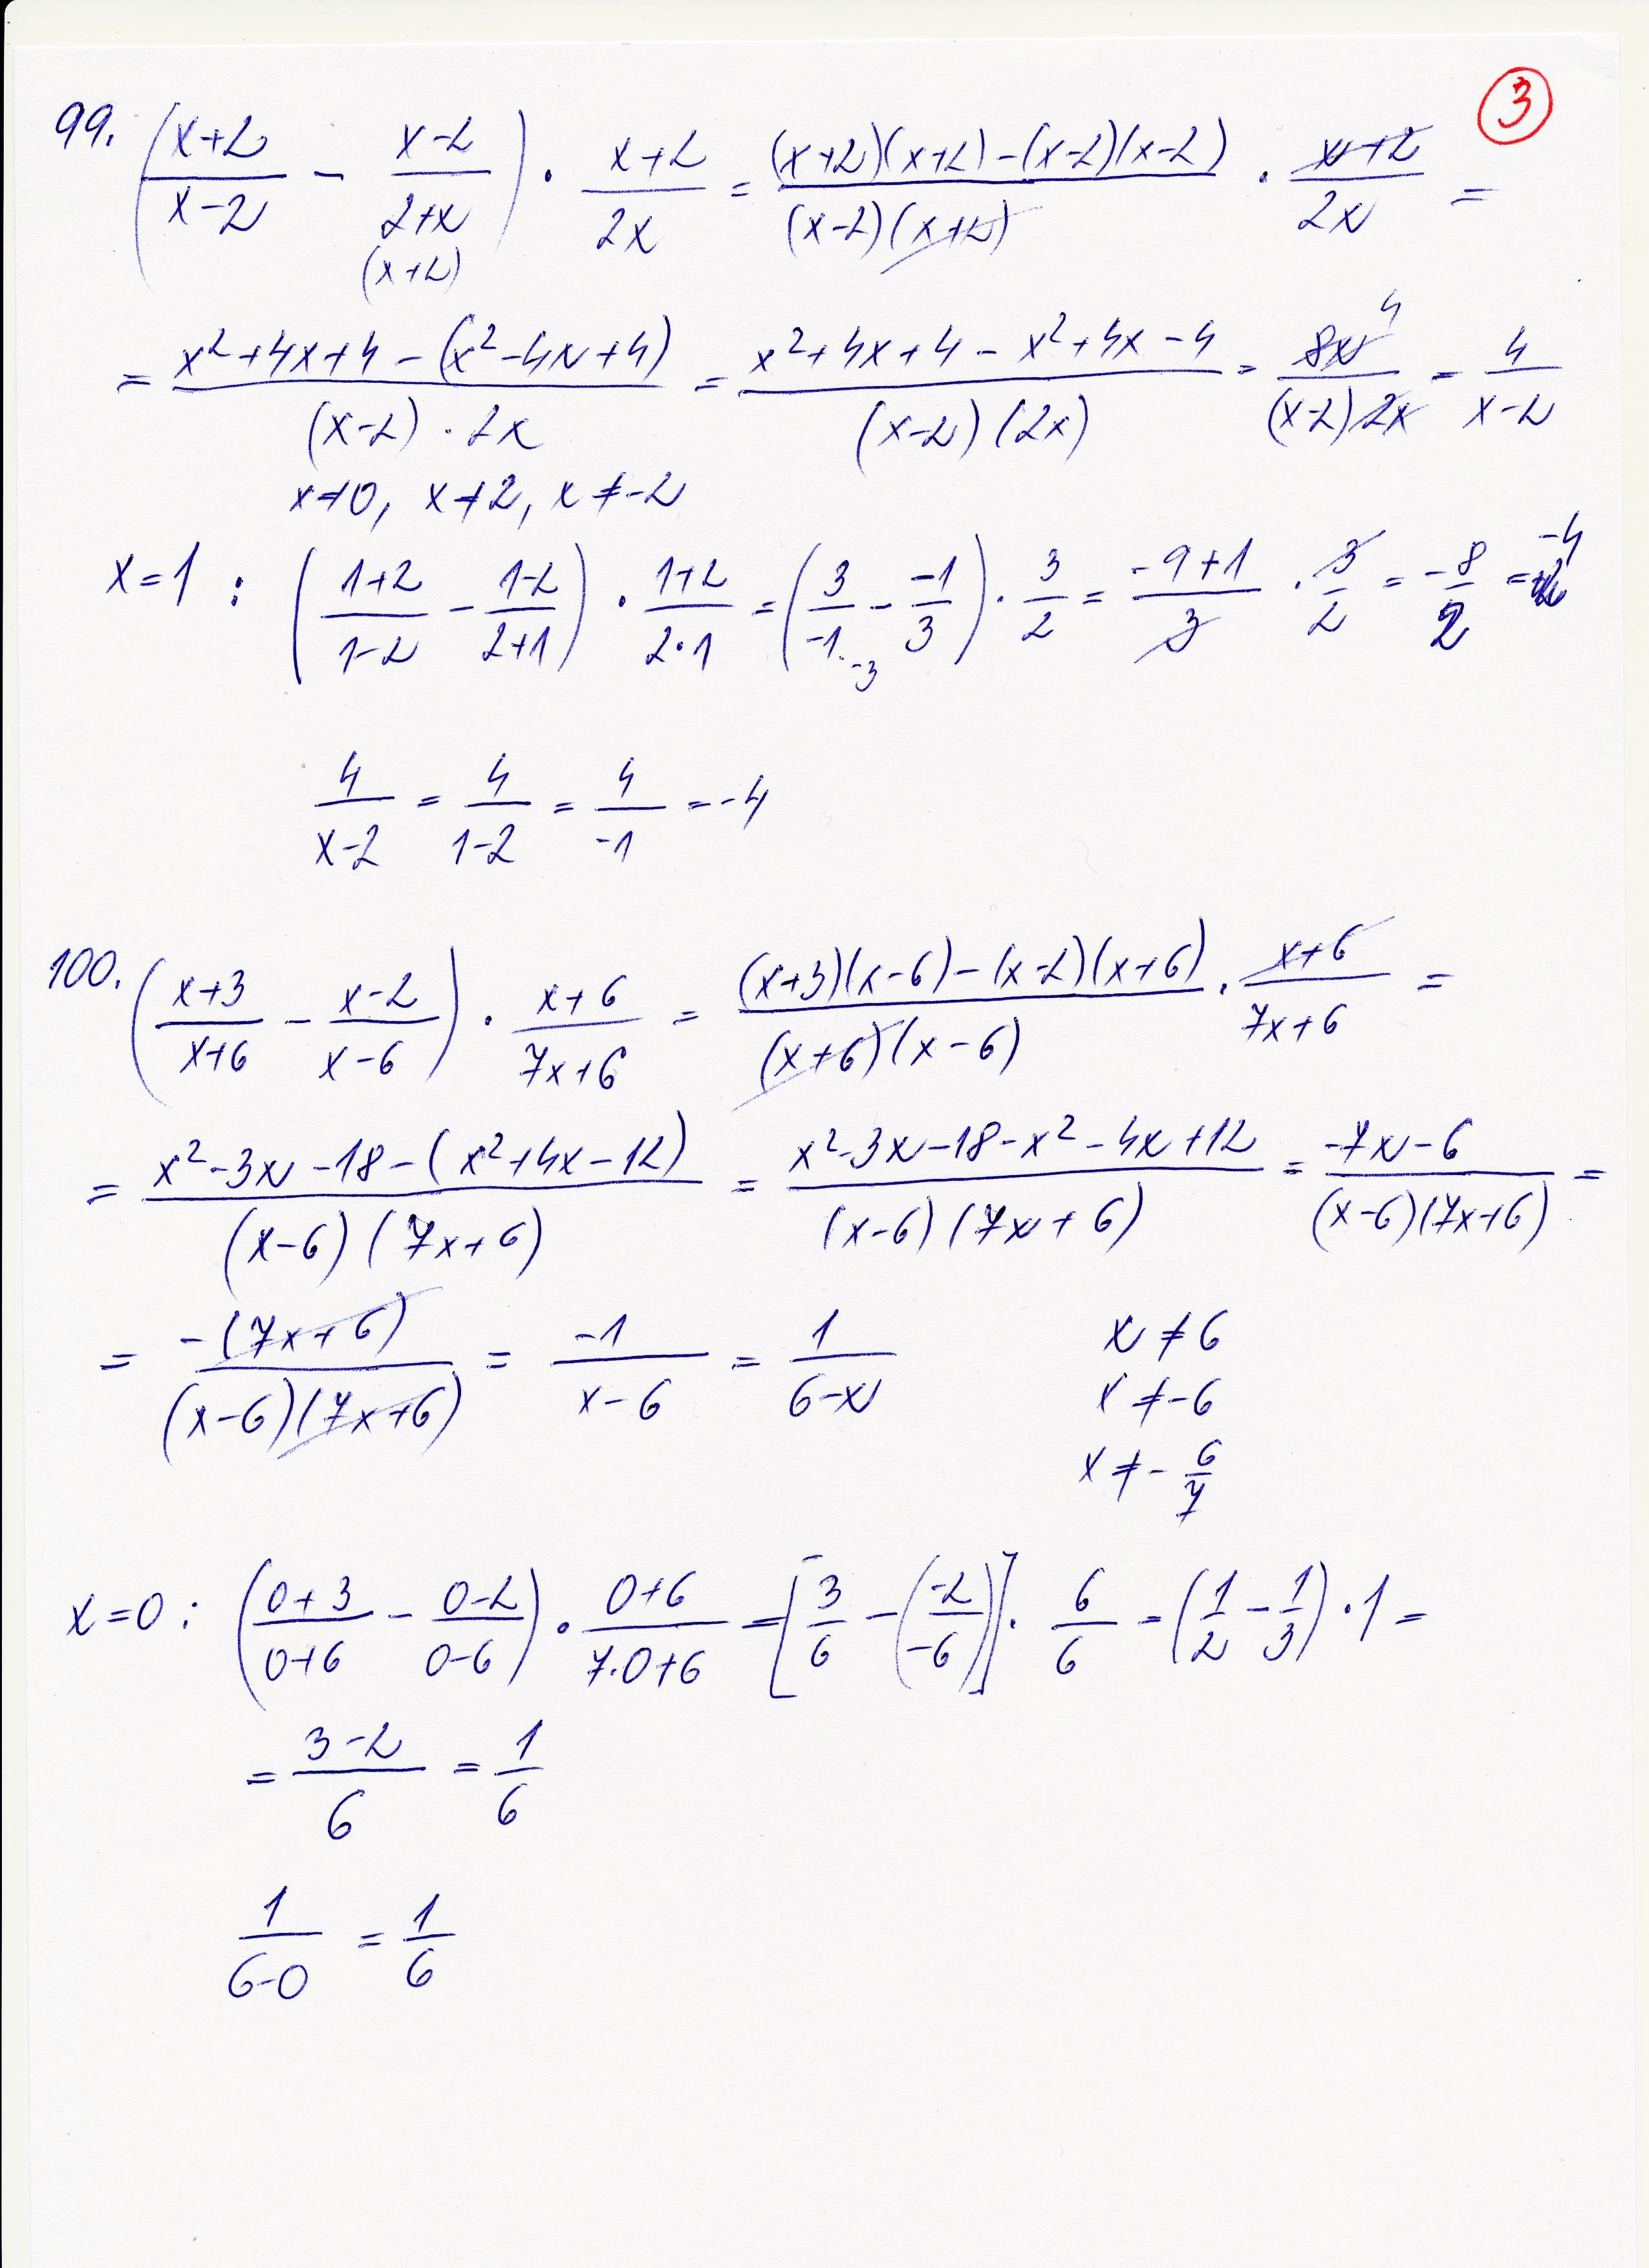 3
99. ( (x+2)/(x-2) - (x-2)/(2+x) ) · (x+2)/(2x) = ((x+2)(x+2)-(x-2)(x-2))/((x-2)(x+2)) · (x+2)/(2x) =
(x+2)
4
= (x²+4x+4-(x²-4x+4))/((x-2)·2x) = (x²+4x+4-x²+4x-4)/((x-2)(2x)) = 8x/((x-2)2x) = 4/(x-2)
x≠0, x≠2, x≠-2
x=1 : ( (1+2)/(1-2) - (1-2)/(2+1) ) · (1+2)/(2·1) = ( 3/-1 - -1/3 ) · 3/2 = (-9+1)/3 · 3/2 = -8/2 = -4
-3
4/(x-2) = 4/(1-2) = 4/-1 = -4
100. ( (x+3)/(x+6) - (x-2)/(x-6) ) · (x+6)/(7x+6) = ((x+3)(x-6)-(x-2)(x+6))/((x+6)(x-6)) · (x+6)/(7x+6) =
= (x²-3x-18-(x²+4x-12))/((x-6)(7x+6)) = (x²-3x-18-x²-4x+12)/((x-6)(7x+6)) = (-7x-6)/((x-6)(7x+6)) =
= -(7x+6)/((x-6)(7x+6)) = -1/(x-6) = 1/(6-x)
x≠6
x≠-6
x≠-6/7
x=0 : ( (0+3)/(0+6) - (0-2)/(0-6) ) · (0+6)/(7·0+6) = [ 3/6 - ( -2/-6 ) ] · 6/6 = ( 1/2 - 1/3 ) · 1 =
= (3-2)/6 = 1/6
1/(6-0) = 1/6